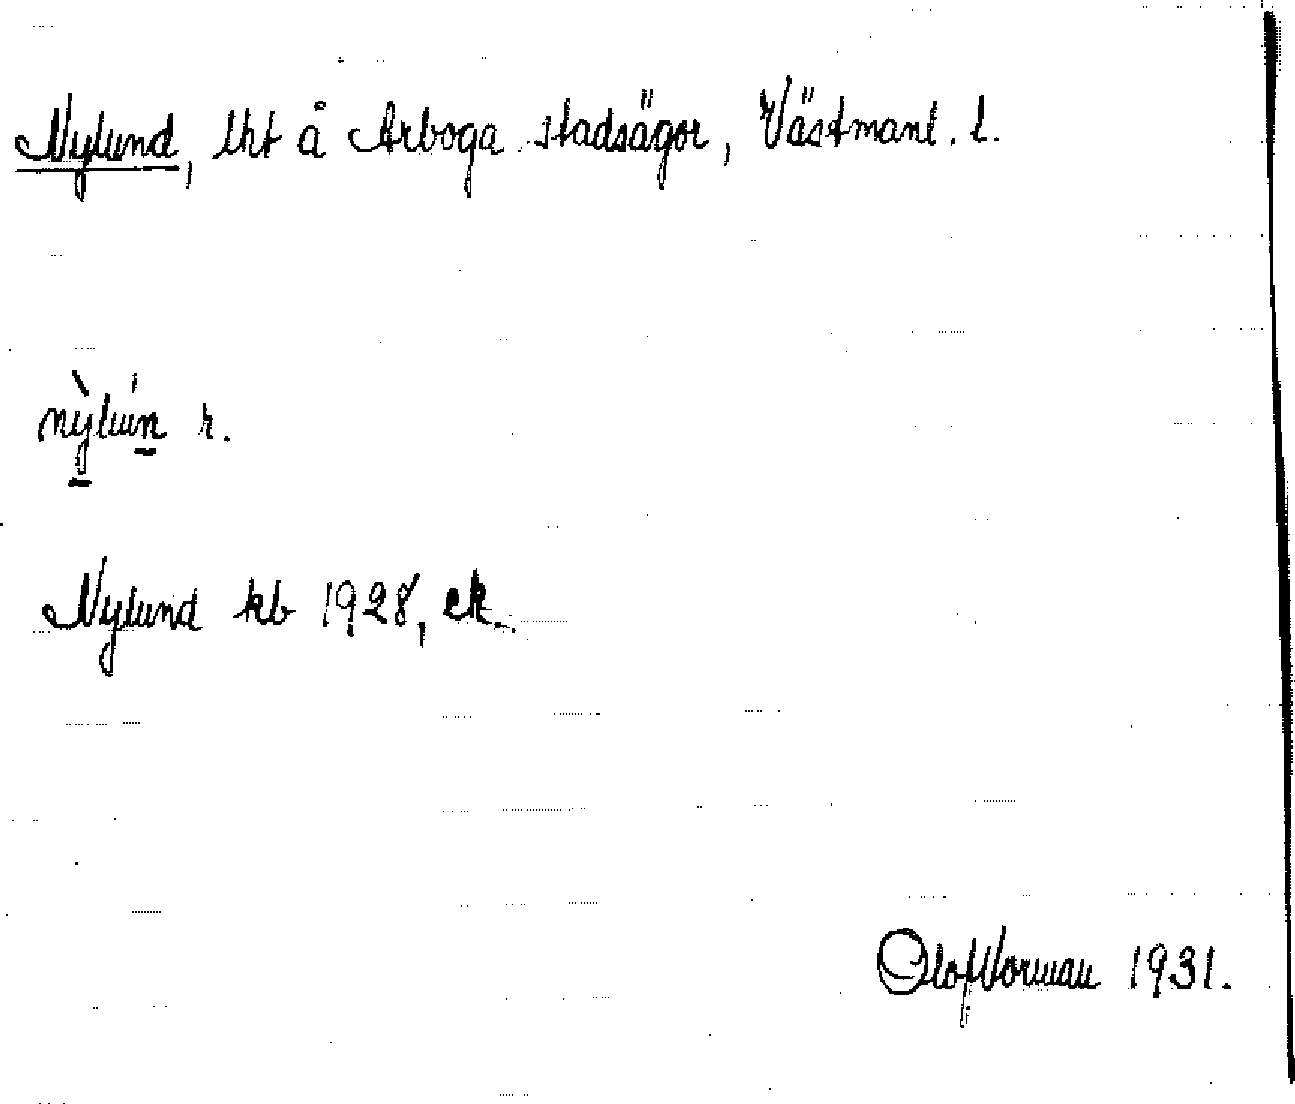 Nylund, lht å Arboga stadsägor, Västmanl. l.
nỳlún r.
Nylund kb 1928, ek.
Olof Norman 1931.